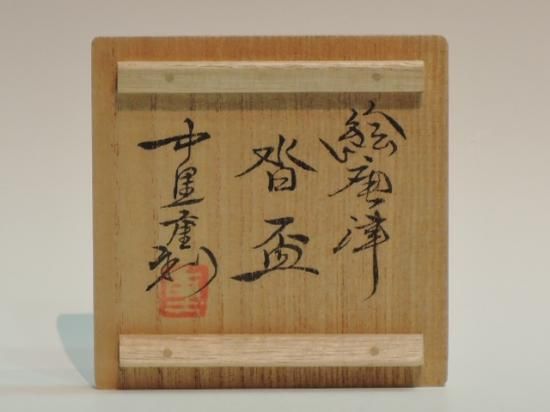 絵唐津
沓盃
中里重利